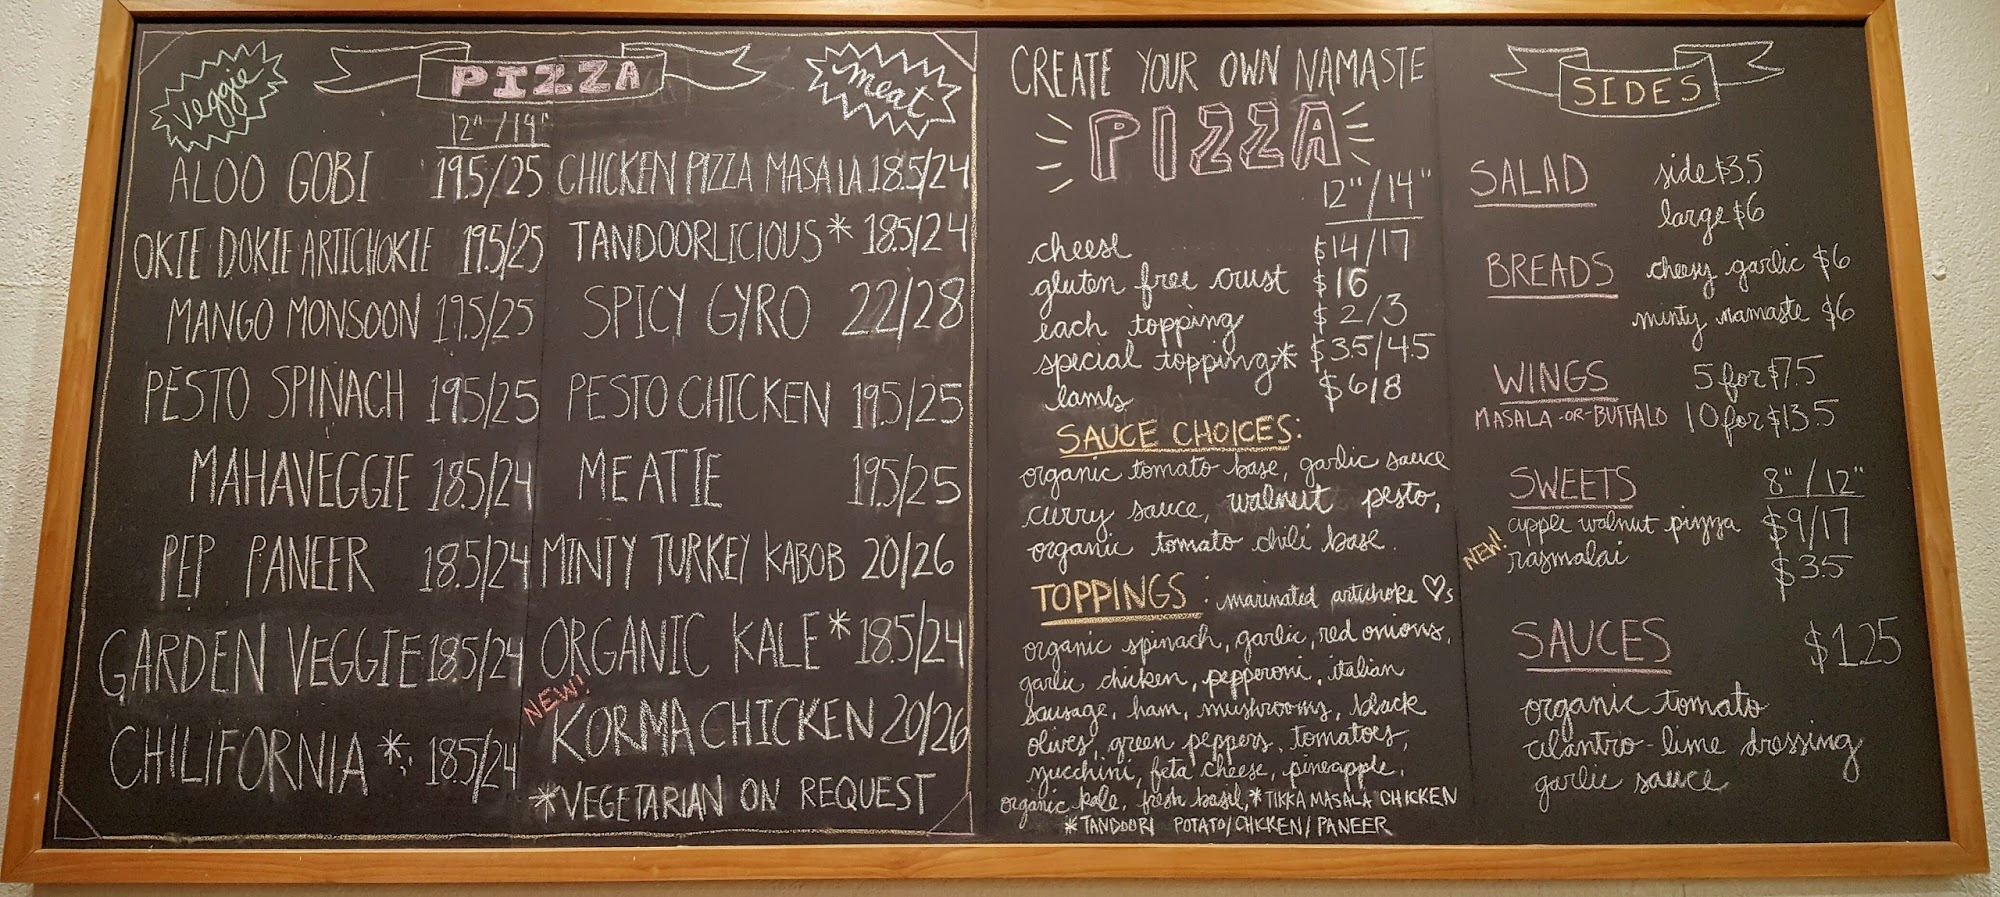 veggie
PIZZA
meat
12"/14"
ALOO GOBI 19.5/25
OKIE DOKIE ARTICHOKIE 19.5/25
MANGO MONSOON 19.5/25
PESTO SPINACH 19.5/25
MAHAVEGGIE 18.5/24
PEP PANEER 18.5/24
GARDEN VEGGIE 18.5/24
CHILIFORNIA* 18.5/24
CHICKEN PIZZA MASALA 18.5/24
TANDOORLICIOUS* 18.5/24
SPICY GYRO 22/28
PESTO CHICKEN 19.5/25
MEATIE 19.5/25
MINTY TURKEY KABOB 20/26
ORGANIC KALE* 18.5/24
NEW!
KORMA CHICKEN 20/26
*VEGETARIAN ON REQUEST
CREATE YOUR OWN NAMASTE
PIZZA
12"/14"
cheese $14/17
gluten free crust $16
each topping $2/3
special topping* $3.5/4.5
lamb $6/8
SAUCE CHOICES:
organic tomato base, garlic sauce
curry sauce, walnut pesto,
organic tomato chili base.
TOPPINGS: marinated artichoke ♡s
organic spinach, garlic, red onions,
garlic chicken, pepperoni, italian
sausage, ham, mushrooms, black
olives, green peppers, tomatoes,
zucchini, feta cheese, pineapple,
organic kale, fresh basil, *TIKKA MASALA CHICKEN
*TANDOORI POTATO/CHICKEN/PANEER
SIDES
SALAD side $3.5
large $6
BREADS cheesy garlic $6
minty namaste $6
WINGS 5 for $7.5
MASALA-OR-BUFFALO 10 for $13.5
SWEETS 8"/12"
apple walnut pizza $9/17
NEW! rasmalai $3.5
SAUCES $1.25
organic tomato
cilantro-lime dressing
garlic sauce